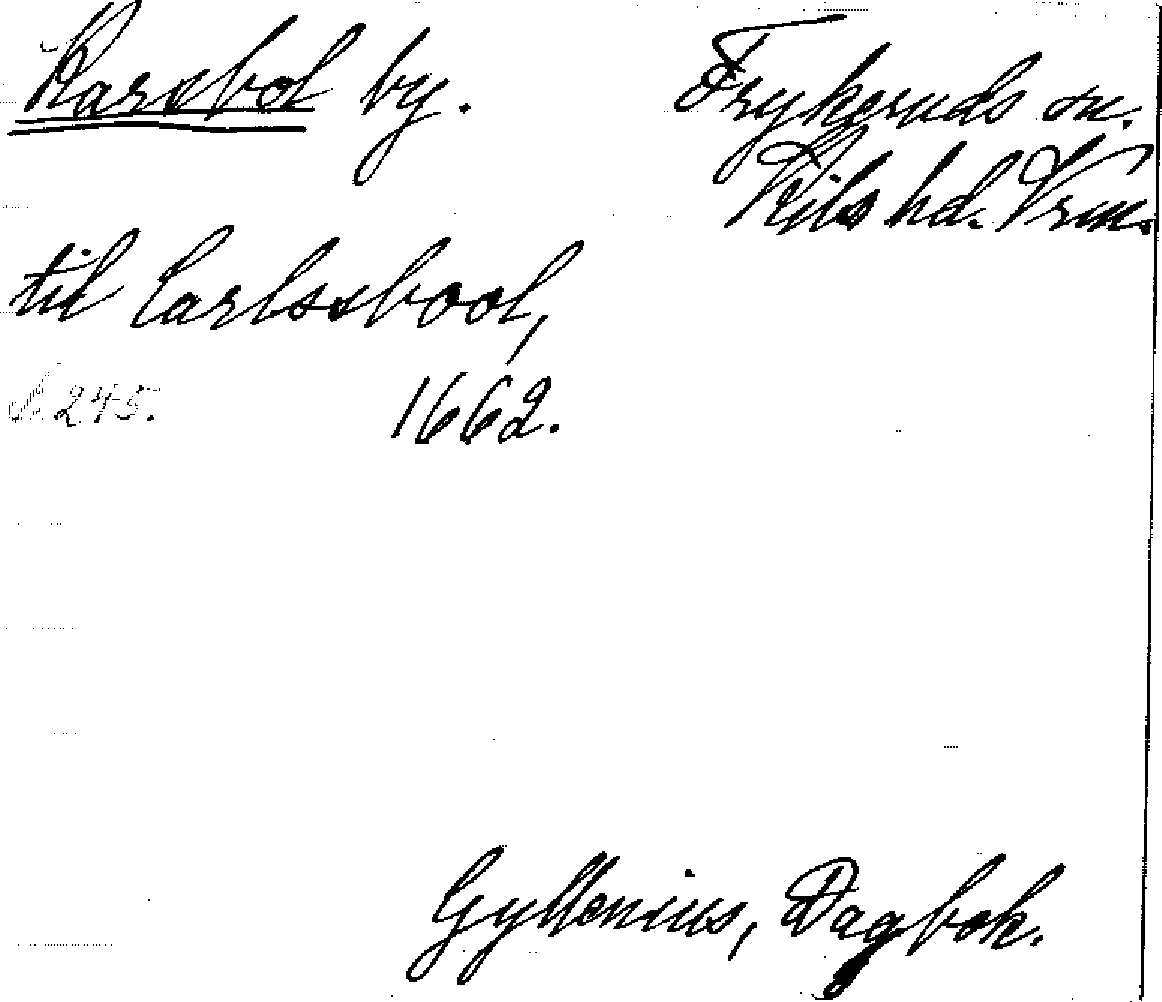 Karsbol by.
Frykeruds sn.
Kils hd. Vrm.
til Carlssbool,
S. 245.
1662.
Gyllenius, Dagbok.